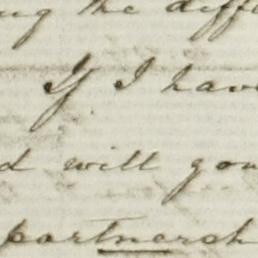 ing the diff
If I have
d will you
partnersh